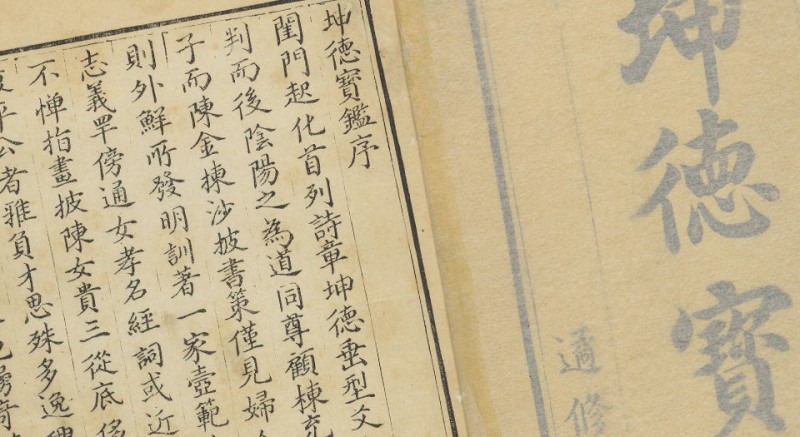 坤德寶
修
坤德寶鑑序
閨門起化首列詩章坤德垂型爻
判而後陰陽之為道同尊顧棟
子而陳金揀沙披書策僅見婦
則外鮮所發明訓著一家壼範
志義罕傍通女孝名經詞或近
不憚指畫披陳女貴三從底
平公者雅負才思殊多逸